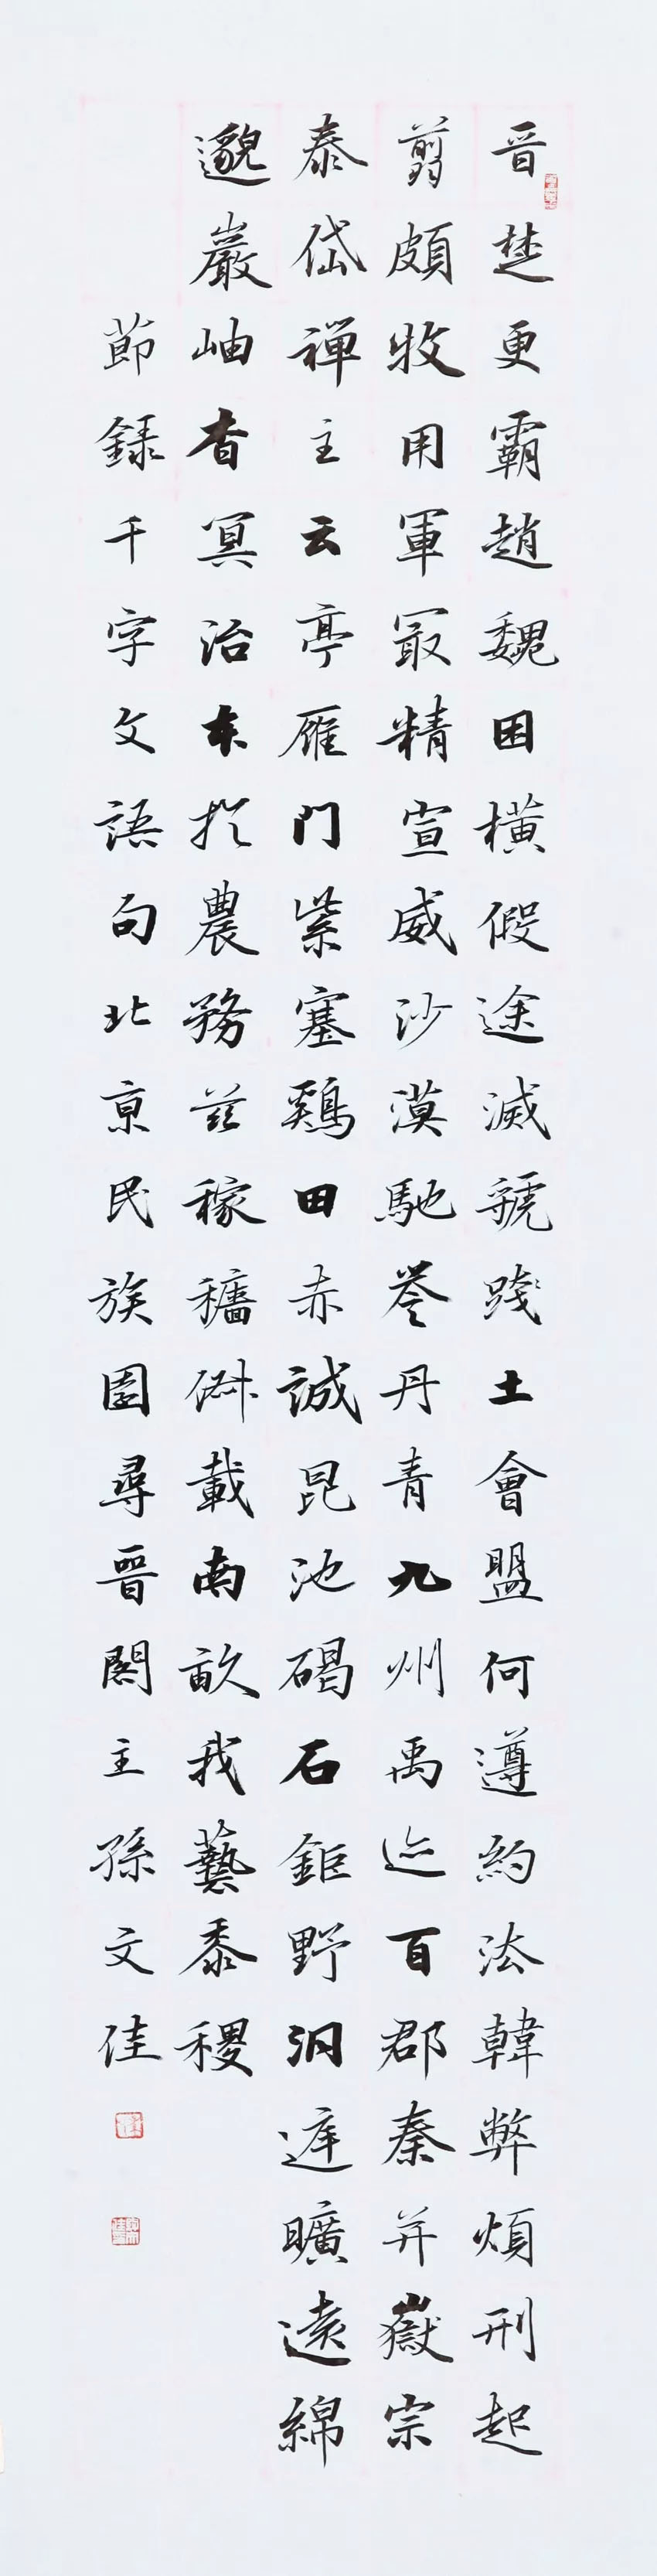 晉楚更霸趙魏困橫假途滅虢踐土會盟何遵約法韓弊煩刑起
翦頗牧用軍最精宣威沙漠馳譽丹青九州禹迹百郡秦并嶽宗
泰岱禪主云亭雁門紫塞鷄田赤誠昆池碣石鉅野洞庭曠遠綿
邈巖岫杳冥治本於農務茲稼穡俶載南畝我藝黍稷
節錄千字文語句北京民族園尋晉閣主孫文佳